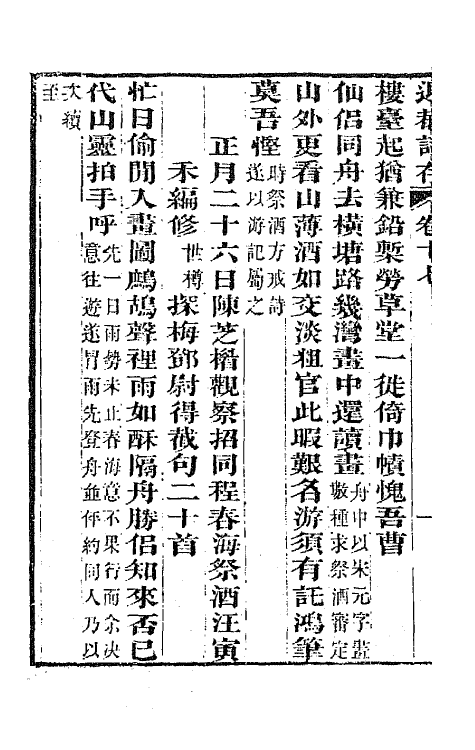 退菴詩存 卷十七
樓臺起猶兼鉛槧勞草堂一徙倚巾幘愧吾曹
仙侶同舟去橫塘路幾灣畫中還讀畫舟中以宋元字畫數種求祭酒審定
山外更看山薄酒如交淡狙官此暇艱名游須有託鴻筆
莫吾慳時祭酒方戒詩遂以游記屬之
正月二十六日陳芝楣觀察招同程春海祭酒汪寅
禾編修世樽探梅鄧尉得截句二十首
忙日偷閒入畫圖鷓鴣聲裡雨如酥隔舟勝侶知來否已
代山靈拍手呼先一日雨勢未止春海意不果行而余決意往遊遂冒雨先登舟並伻約同人乃以
次續至